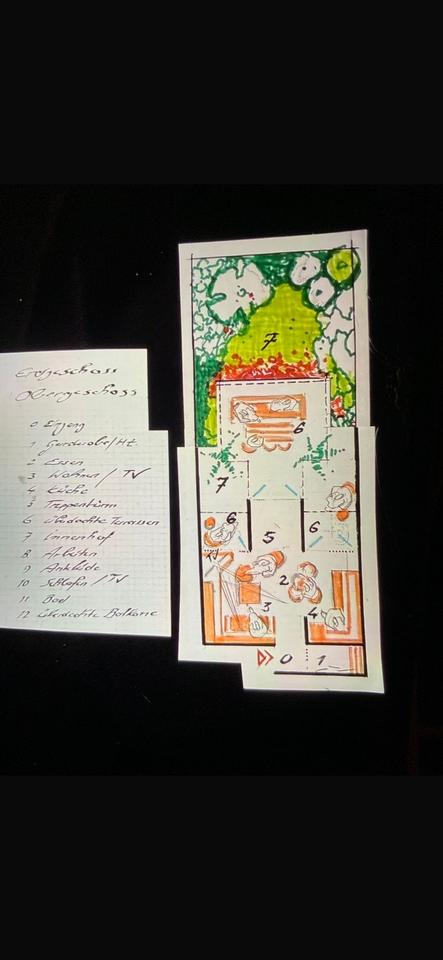 Erdgeschoss
Obergeschoss
0 Eingang
1 Garderobe/Ht
2 Essen
3 Wohnen / TV
4 Küche
5 Treppenturm
6 Überdachte Terrassen
7 Innenhof
8 Arbeiten
9 Ankleide
10 Schlafen / TV
11 Bad
12 Überdachte Balkone
7
6
7
6
6
5
2
3
4
0
1